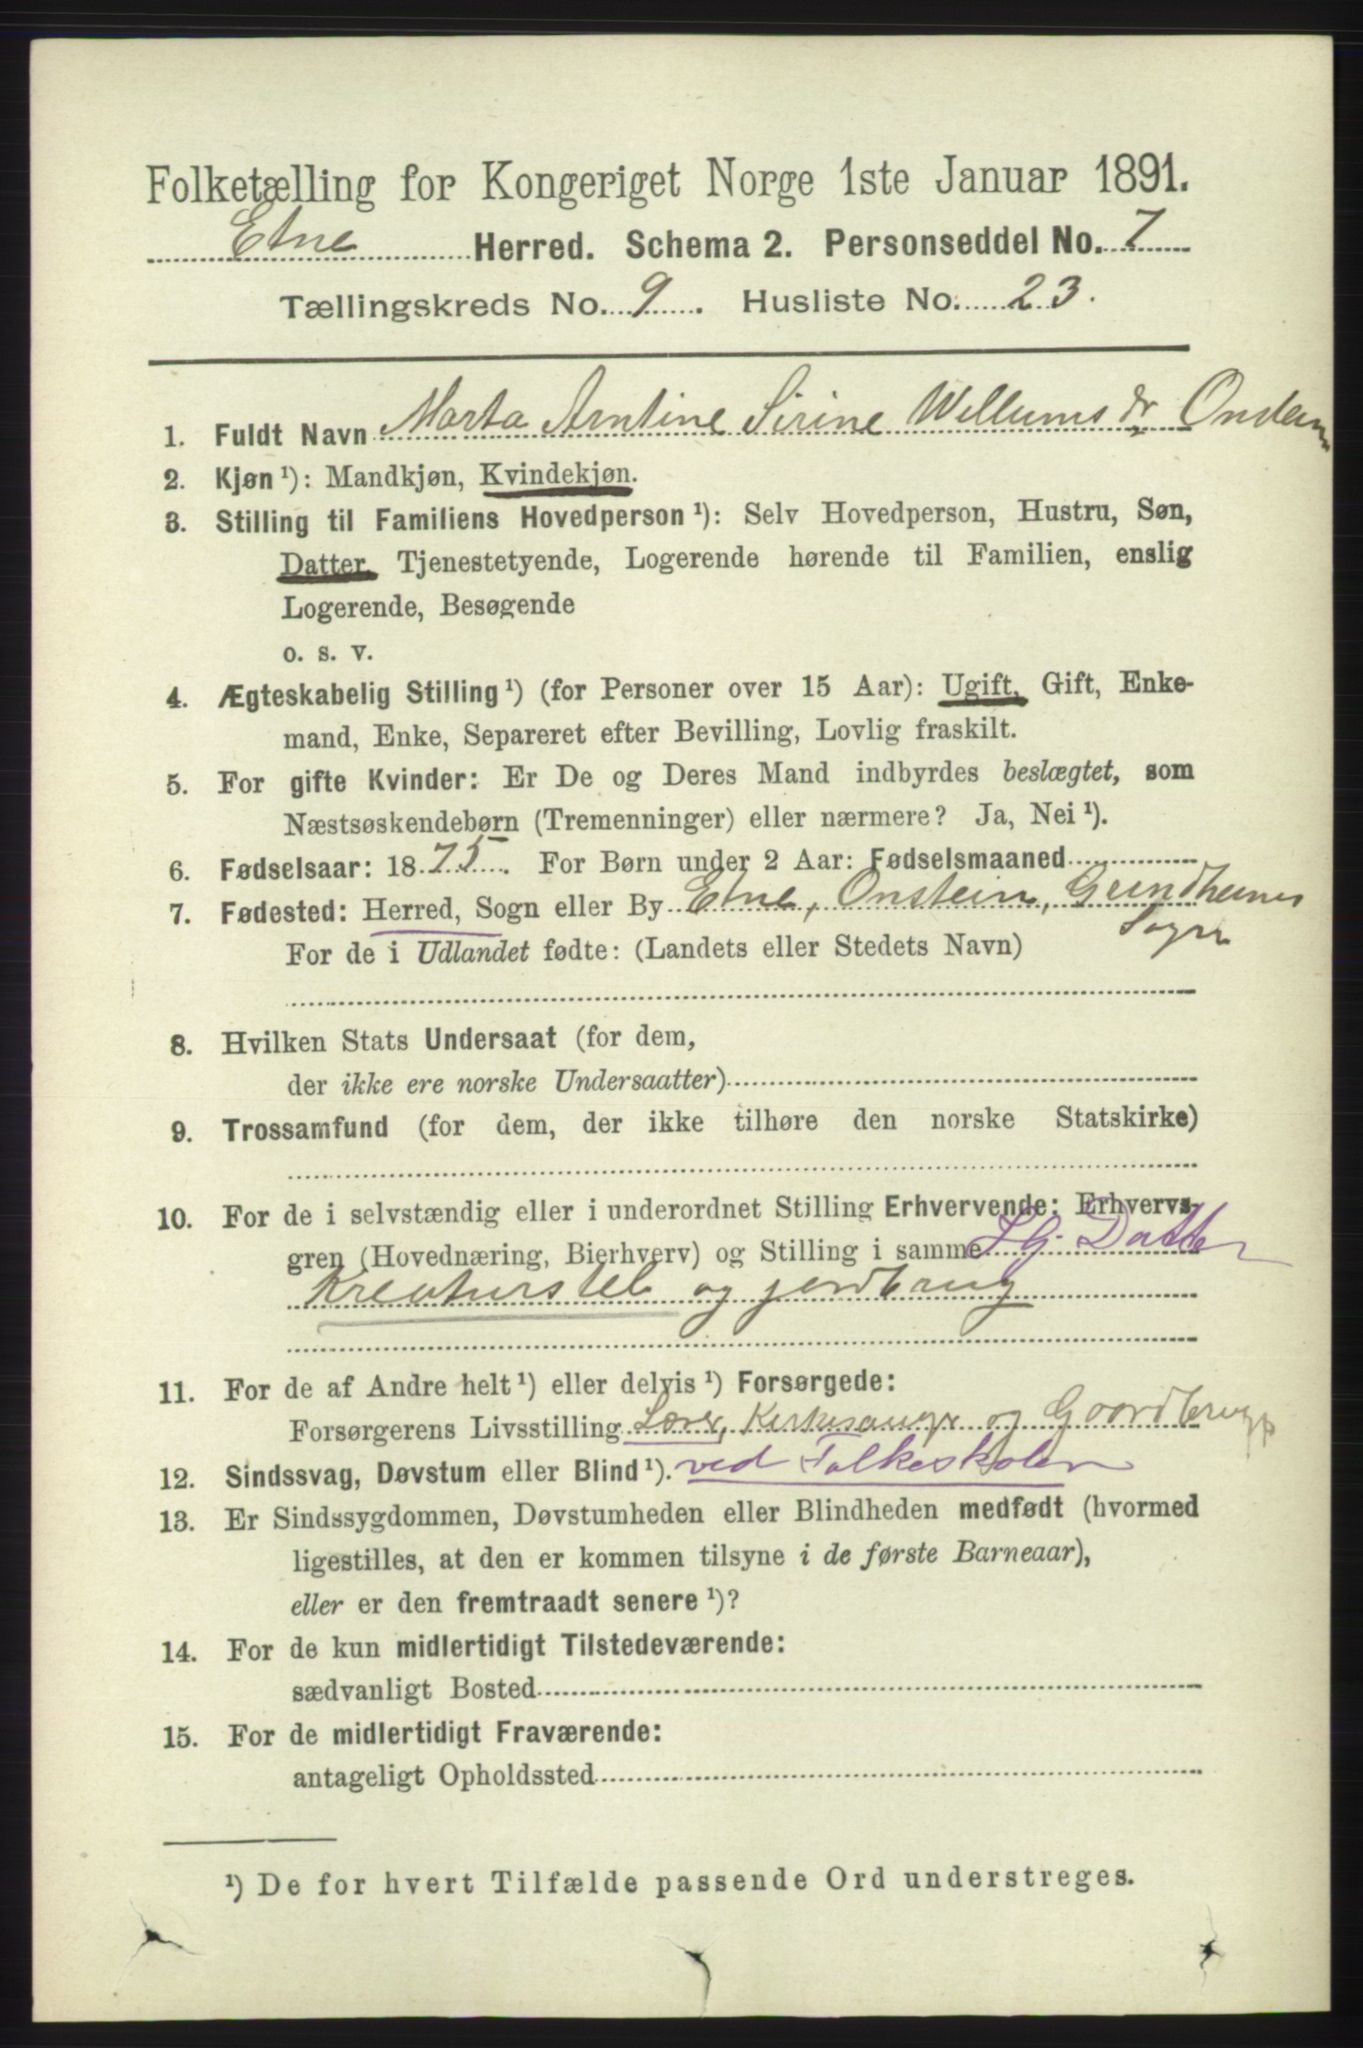 Folketælling for Kongeriget Norge 1ste Januar 1891.
Etne Herred. Schema 2. Personseddel No. 7
Tællingskreds No. 9. Husliste No. 23.
1. Fuldt Navn Marta Arntine Sirine Willumsdr Onstein
2. Kjøn ¹): Mandkjøn, Kvindekjøn.
3. Stilling til Familiens Hovedperson ¹): Selv Hovedperson, Hustru, Søn,
Datter, Tjenestetyende, Logerende hørende til Familien, enslig
Logerende, Besøgende
o. s. v.
4. Ægteskabelig Stilling ¹) (for Personer over 15 Aar): Ugift, Gift, Enke-
mand, Enke, Separeret efter Bevilling, Lovlig fraskilt.
5. For gifte Kvinder: Er De og Deres Mand indbyrdes beslægtet, som
Næstsøskendebørn (Tremenninger) eller nærmere? Ja, Nei ¹).
6. Fødselsaar: 1875. For Børn under 2 Aar: Fødselsmaaned
7. Fødested: Herred, Sogn eller By Etne, Onstein, Grindheims
Sogn
For de i Udlandet fødte: (Landets eller Stedets Navn)
8. Hvilken Stats Undersaat (for dem,
der ikke ere norske Undersaatter)
9. Trossamfund (for dem, der ikke tilhøre den norske Statskirke)
10. For de i selvstændig eller i underordnet Stilling Erhvervende: Erhvervs-
gren (Hovednæring, Bierhverv) og Stilling i samme LG. Datter
Kreaturstel og jordbrug
11. For de af Andre helt ¹) eller delvis ¹) Forsørgede:
Forsørgerens Livsstilling Lærer, Kirkesanger og Gaardbruger
12. Sindssvag, Døvstum eller Blind ¹). ved Folkeskolen
13. Er Sindssygdommen, Døvstumheden eller Blindheden medfødt (hvormed
ligestilles, at den er kommen tilsyne i de første Barneaar),
eller er den fremtraadt senere ¹)?
14. For de kun midlertidigt Tilstedeværende:
sædvanligt Bosted
15. For de midlertidigt Fraværende:
antageligt Opholdssted
¹) De for hvert Tilfælde passende Ord understreges.